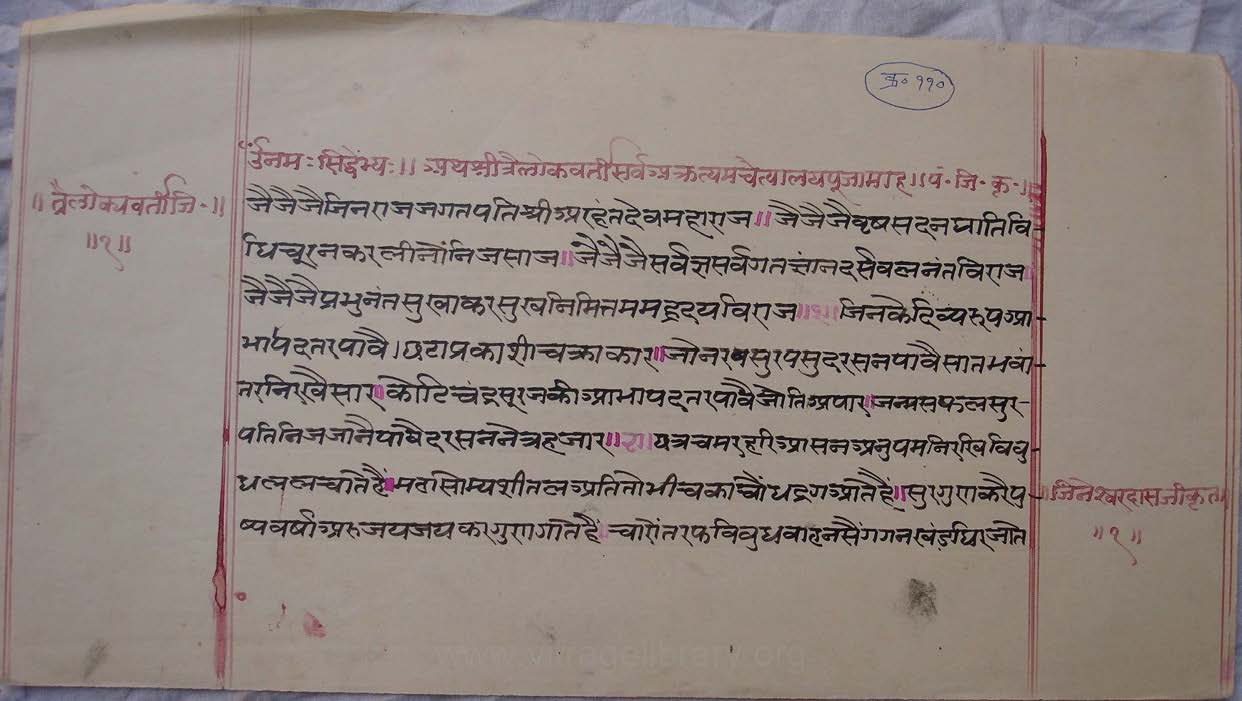 क्र० ११०
र्उनमः सिद्धेभ्यः॥ अथश्रीत्रैलोकवर्तीसर्वअक्रत्यमचैत्यालयपूजामाह॥पं॰जि॰कृ॰॥
॥त्रैलोक्यवर्तीजि॰॥
॥१॥
जैजैजैजिनराजजगतपतिश्रीअरहंतदेवमहाराज॥जैजैजैवृषसदनघातिवि-
धिचूरनकरलीनोंनिजसाज॥जैजैजैसर्वज्ञसर्वगतज्ञानदर्सवलनंतविराज॥
जैजैजैप्रभुनंतसुखाकरसुखनिमित्तममहृदयविराज॥१॥जिनकैदिव्यरूपआ-
भापदतरपावै।छटाप्रकाशीचक्राकार॥जोनरषसुरपसुदरसनपावैसातभवां-
तरनिरखैसार॥कोटिचंद्रसूरजकीआभापदतरपावैजोतिअपार॥जन्मसफलसुर-
पतिनिजजानैपावैदरसननेत्रहजार॥२॥यत्रचमरहरिआसनअनुपमनिरखिविवु-
धललचातेहैं॥महासोम्यशीतलअतितोभीचकाचोंधद्रगआतेहैं॥सुरगुणकरैपु-
ष्पवर्षाअरुजयजयकरगुणगातेहैं॥चारोंतरफविवुधवाहनसैंगगनखंडघिरजाते
॥जिनेश्वरदासजीकृत॥
॥१॥
www.vitragelibrary.org